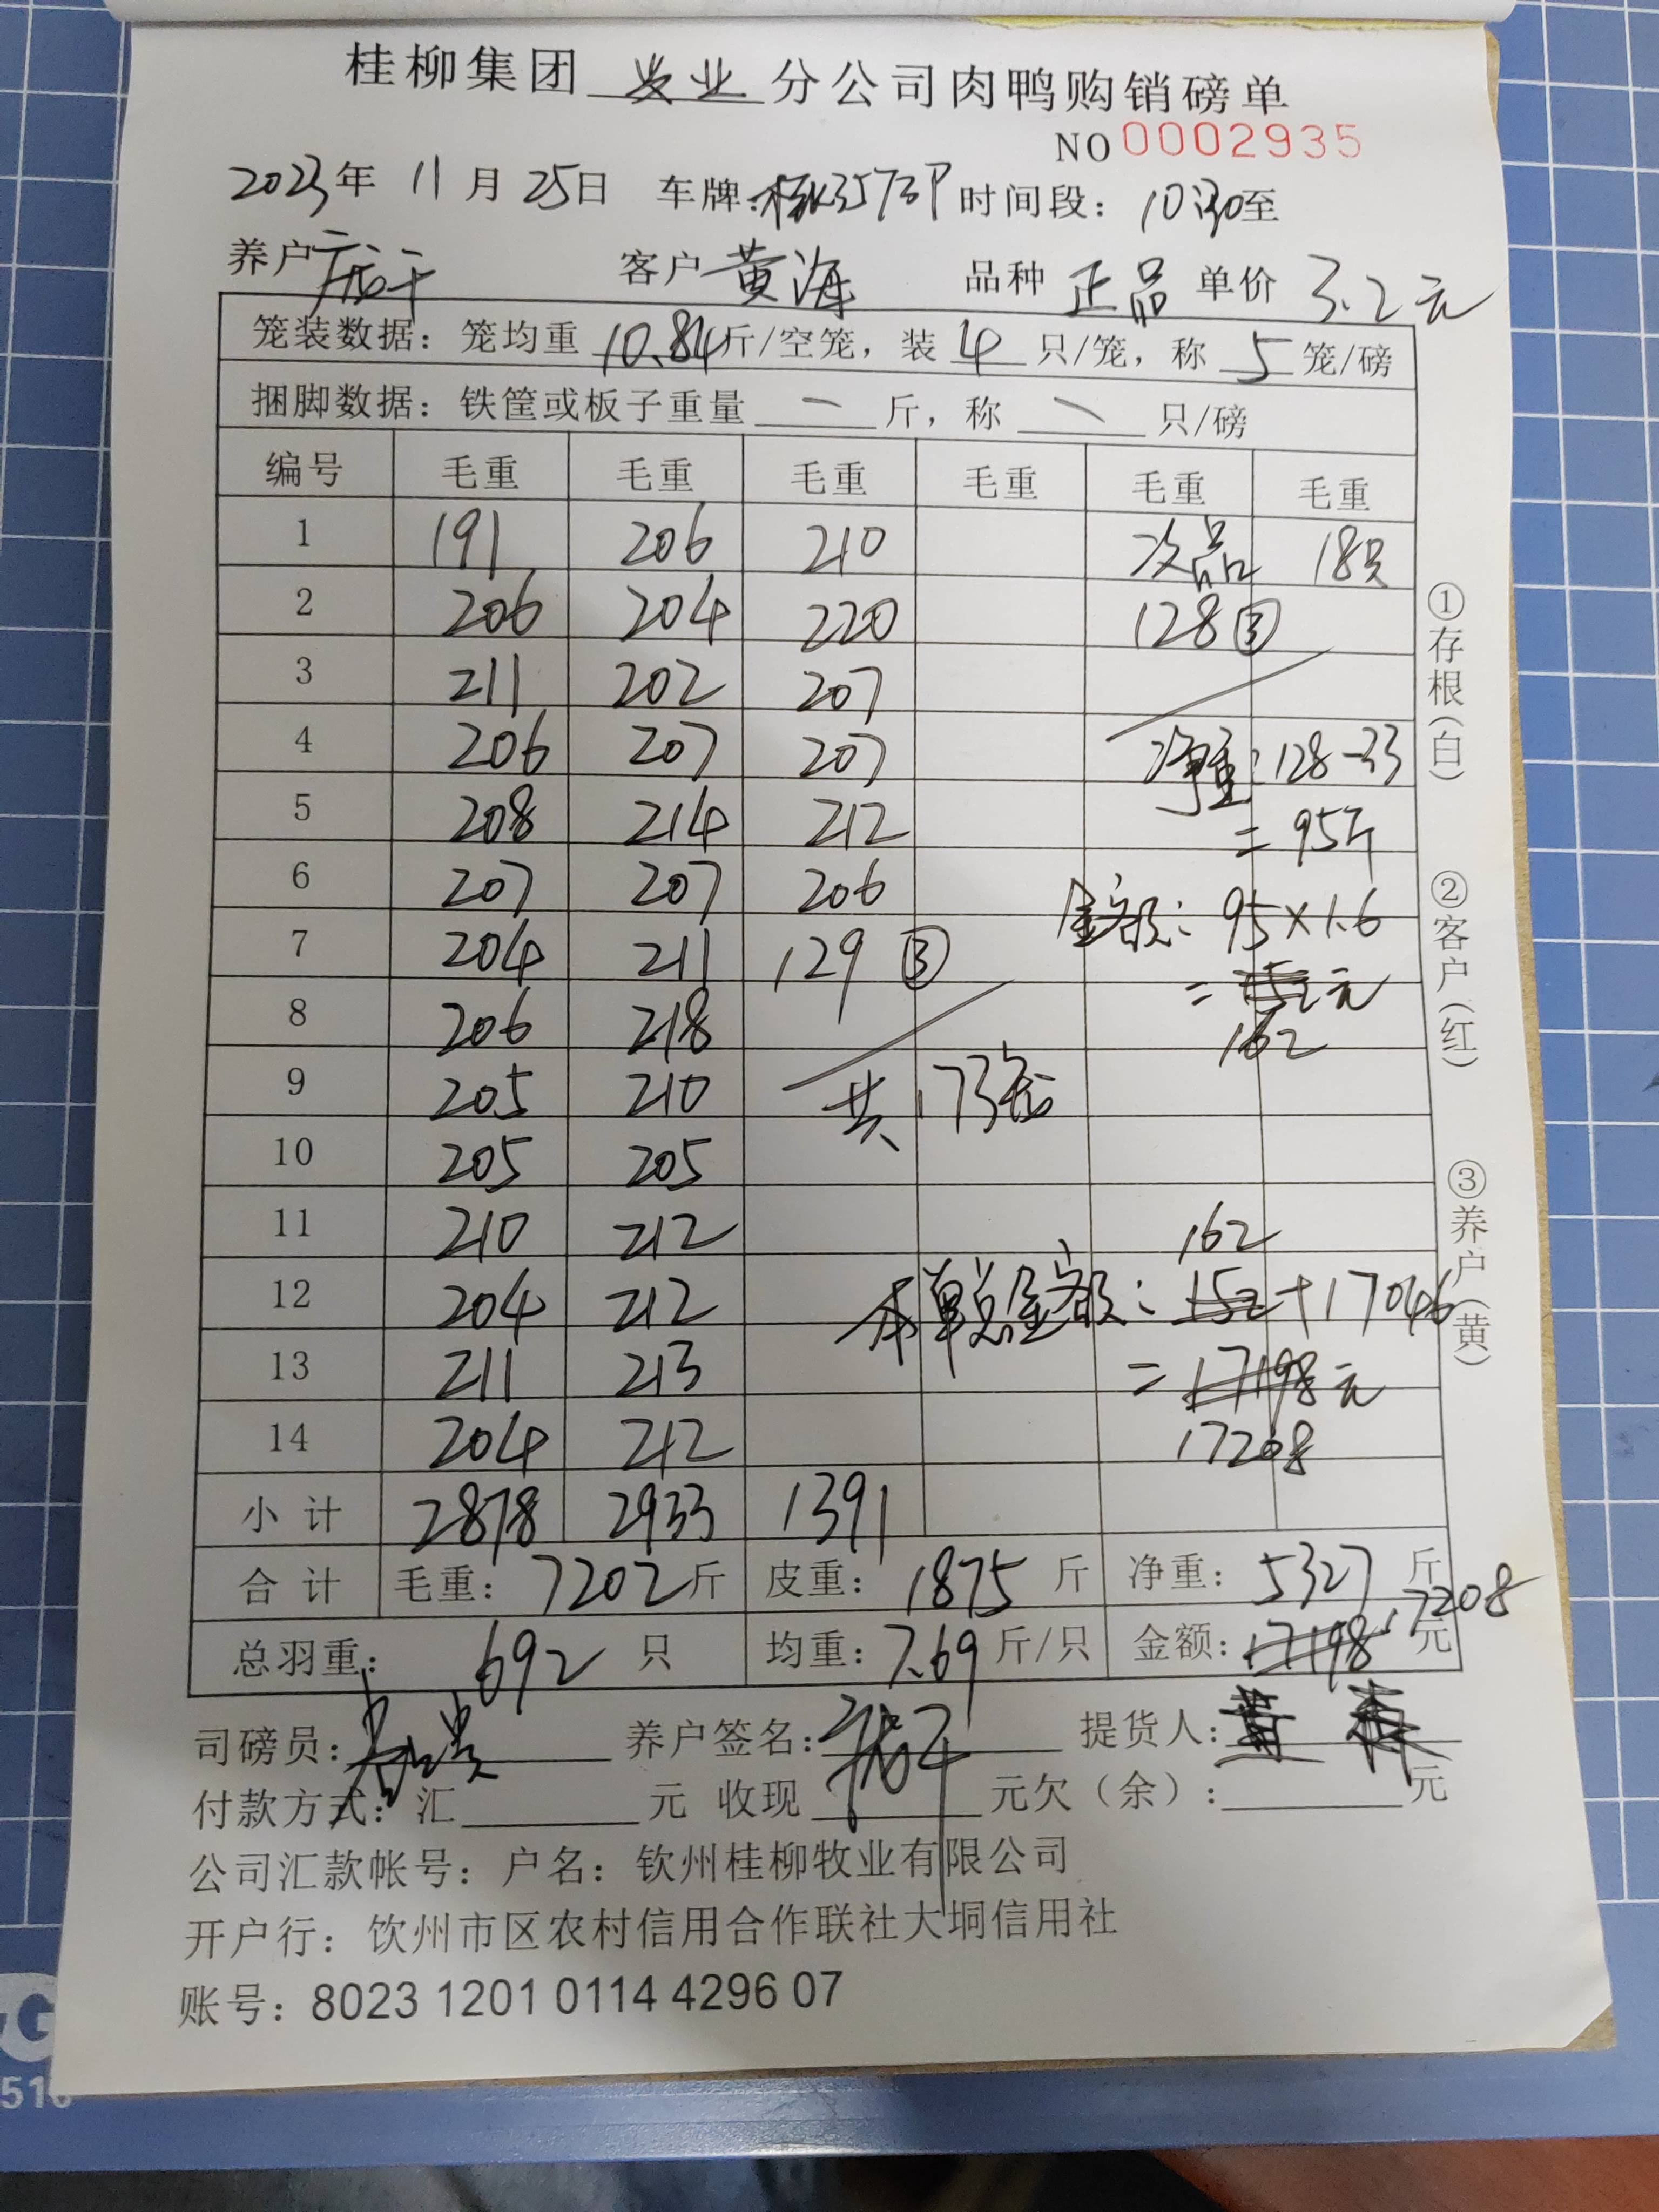 桂柳集团 业 分公司肉鸭购销磅单
NO 0002935
2023年 11月 25日 车牌: 3573P 时间段: 10:30至
养户 客户 黄海 品种 正品 单价 3.2元
笼装数据: 笼均重 10.84斤/空笼, 装 4 只/笼, 称 5 笼/磅
捆脚数据: 铁筐或板子重量 一 斤, 称 一 只/磅
编号 毛重 毛重 毛重 毛重 毛重 毛重
1 191 206 210 次品 18只
2 206 204 220 128③
3 211 202 207
4 206 207 207 净重: 128-33
5 208 214 212 = 95斤
6 207 207 206 金额: 95×1.6
7 204 211 129 ③ = 152元
8 206 218 162
9 205 210 共173笼
10 205 205
11 210 212 162
12 204 212 本单总金额: 152+17046
13 211 213 = 17198元
14 204 212 17208
小计 2878 2933 1391
合计 毛重: 7202斤 皮重: 1875 斤 净重: 5327 斤
总羽重: 692 只 均重: 7.69斤/只 金额: 17198 17208 元
司磅员: 养户签名: 提货人: 黄
付款方式: 汇 元 收现 元欠(余): 元
公司汇款帐号: 户名: 钦州桂柳牧业有限公司
开户行: 饮州市区农村信用合作联社大垌信用社
账号: 8023 1201 0114 4296 07
①存根(白) ②客户(红) ③养户(黄)